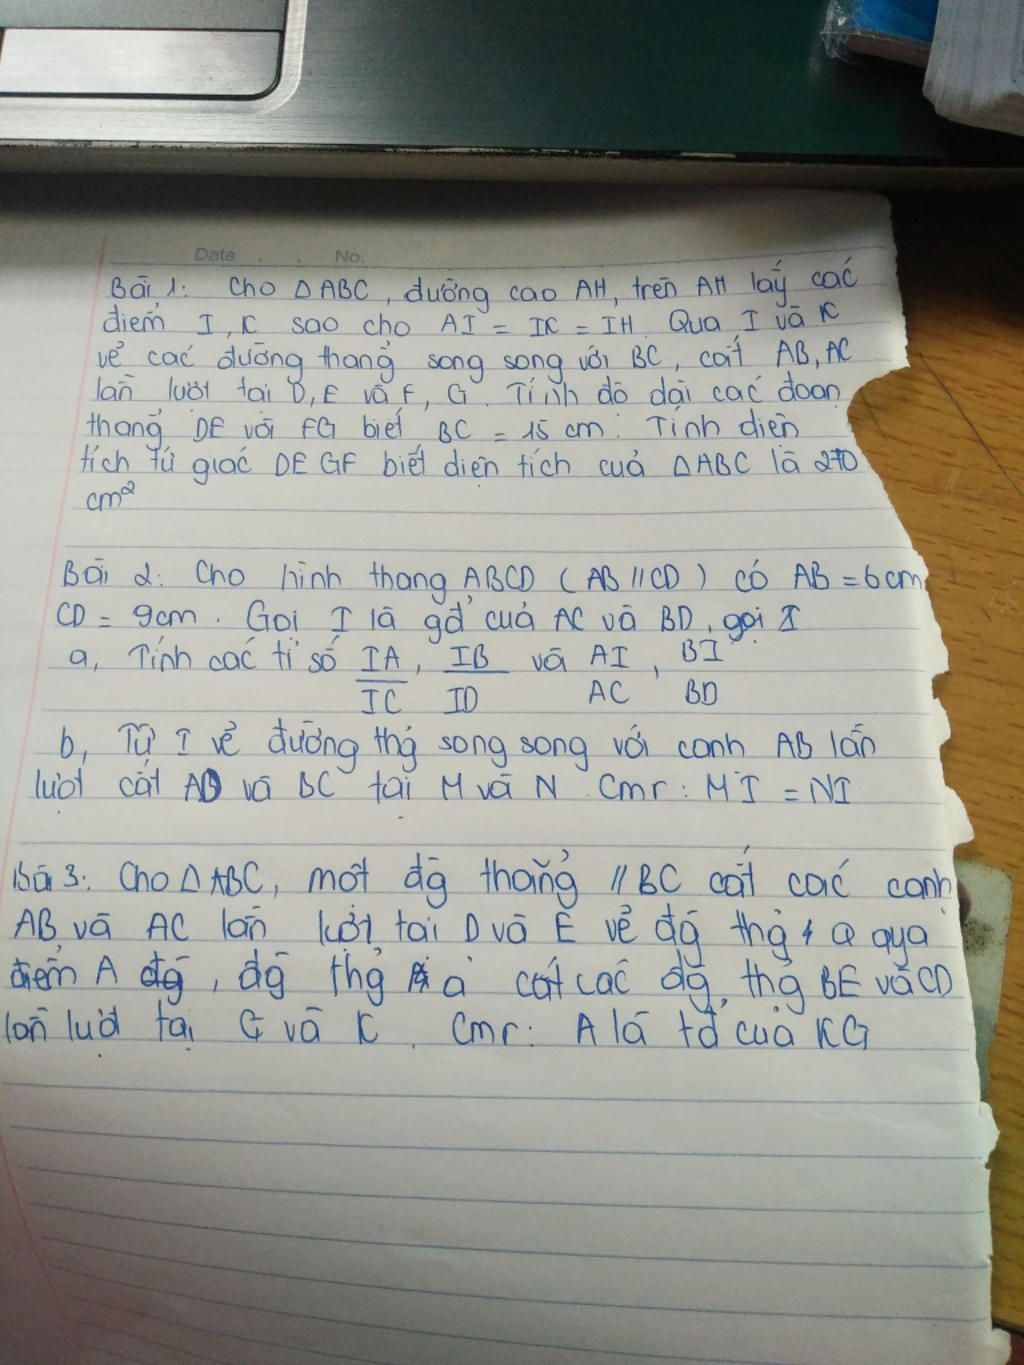 Date . . No.
Bài 1: Cho ΔABC, đường cao AH, trên AH lấy các
điểm I, K sao cho AI = IK = IH. Qua I và K
vẽ các đường thẳng song song với BC, cắt AB, AC
lần lượt tại D, E và F, G. Tính độ dài các đoạn
thẳng DE với FG biết BC = 15 cm. Tính diện
tích tứ giác DEGF biết diện tích của ΔABC là 270
cm²
Bài 2: Cho hình thang ABCD (AB // CD) có AB = 6cm
CD = 9cm. Gọi I là gđ của AC và BD, gọi I
a, Tính các tỉ số IA/IC, IB/ID và AI/AC, BI/BD
b, Từ I vẽ đường thg song song với cạnh AB lần
lượt cắt AD và BC tại M và N. Cmr: MI = NI
Bài 3: Cho ΔABC, một đg thẳng // BC cắt các cạnh
AB và AC lần lượt tại D và E vẽ đg thg qua
điểm A, đg thg a cắt các đg thg BE và CD
lần lượt tại G và K. Cmr: A là tđ của KG